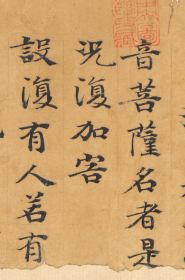 音菩薩名者是
況復加害
設復有人若有